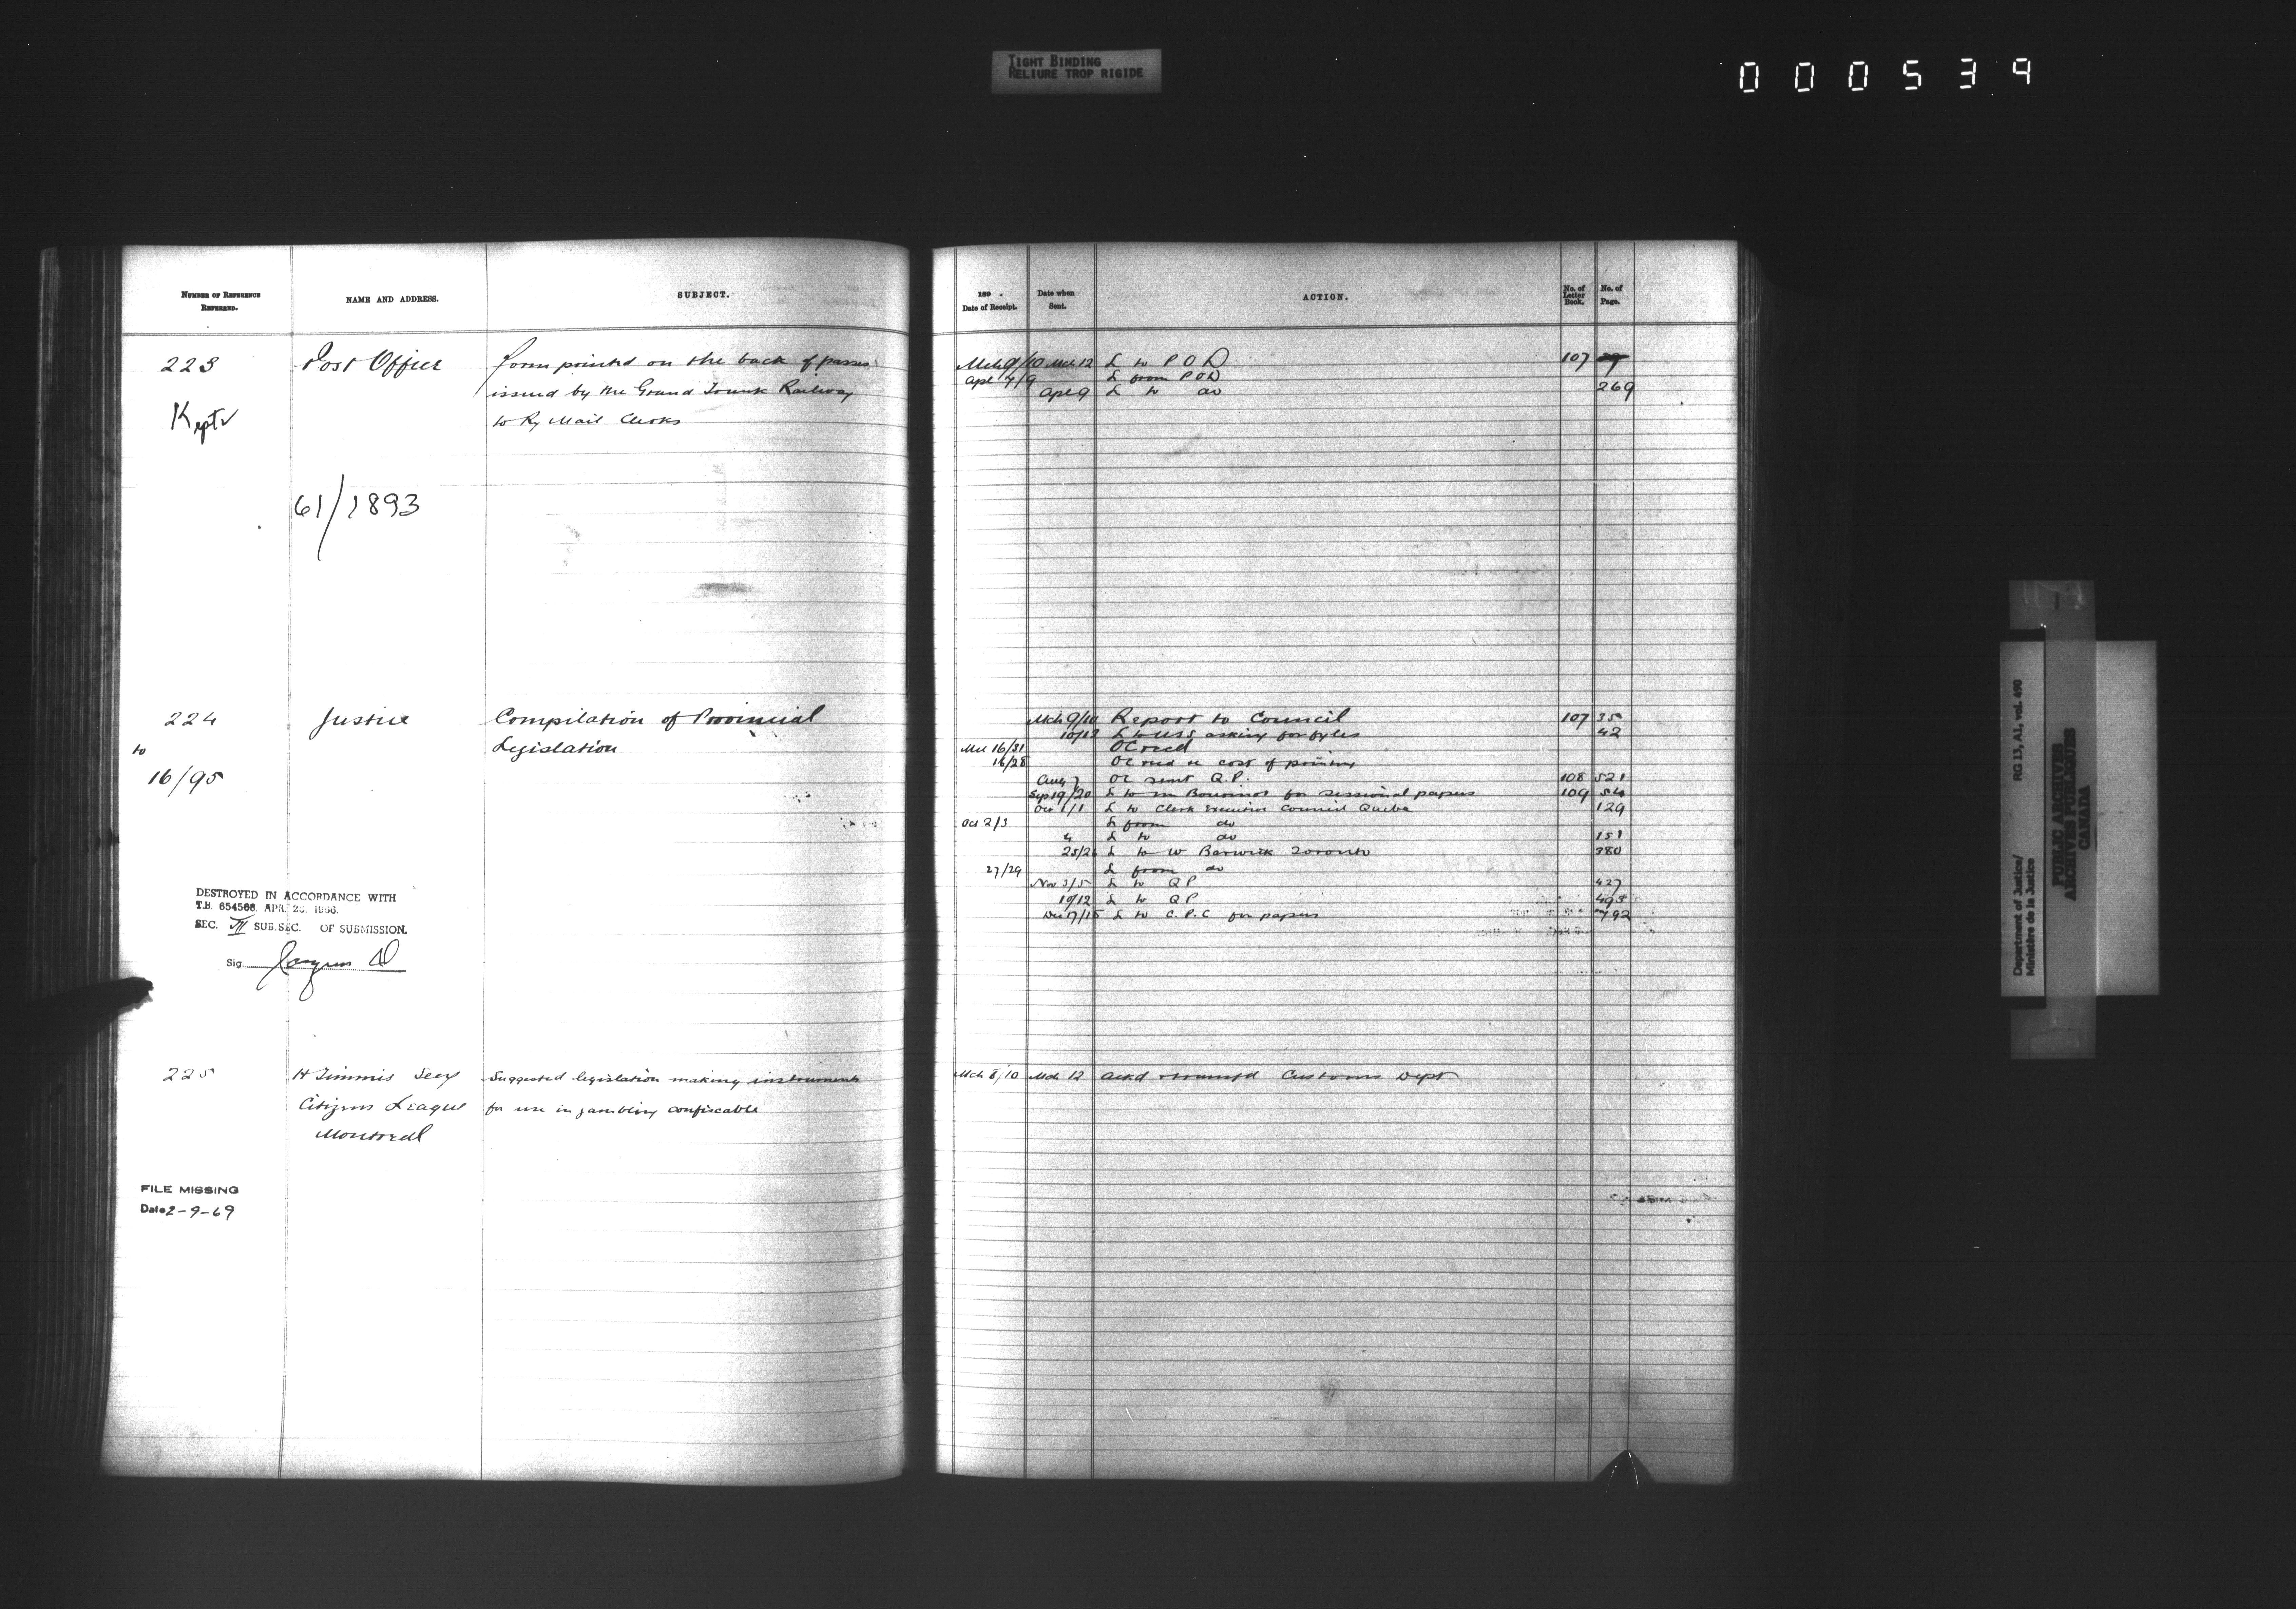 TIGHT BINDING
RELIURE TROP RIGIDE
000539
NUMBER OF REFERENCE
REFERRED.
NAME AND ADDRESS.
SUBJECT.
223
Post Office
form printed on the back of passes
issued by the Grand Trunk Railway
to Ry Mail Clerks
Kept
61/1893
224
Justice
Compilation of Provincial
Legislation
to
16/95
DESTROYED IN ACCORDANCE WITH
T.B. 654566 APR. 26. 1966.
SEC. VII SUB.SEC. OF SUBMISSION.
Sig.
225
H Timmis Secy
Suggested legislation making instruments
Citizens League
for use in gambling confiscable
Montreal
FILE MISSING
Date 2-9-69
189 .
Date of Receipt.
Date when
Sent.
ACTION.
No. of
Letter
Book.
No. of
Page.
Mch 9/10 Mch 12 L to P O D 107
Apl 7/9 L from P O D
Apl 9 L to do 269
Mch 9/10 Report to Council 107 35
10/12 L to U S S asking for fyles 42
Mch 16/31 OC recd
16/28 OC recd re cost of printing
Aug 7 OC sent Q.P. 108 521
Sep 19/20 L to Mr Bourinot for sessional papers 109 54
Oct 1/1 L to Clerk Executive Council Quebec 129
Oct 2/3 L from do
4 L to do 151
25/26 L to W Barwick Toronto 380
27/29 L from do
Nov 3/5 L to Q P 427
10/12 L to Q P 493
Dec 17/18 L to C.P.C for papers 792
Mch 8/10 Mch 12 Ackd & transfd Customs Dept
Department of Justice/ RG 13, A1, vol. 490
Ministère de la Justice
PUBLIC ARCHIVES
ARCHIVES PUBLIQUES
CANADA